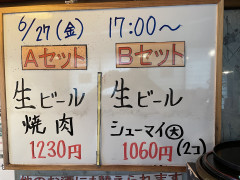 6/27(金) 17:00〜
Aセット
生ビール
焼肉
1230円
Bセット
生ビール
シューマイ(大)
(2コ)
1060円